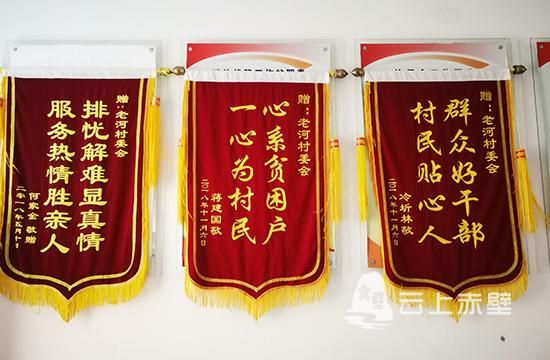 赠:老河村委会
排忧解难显真情
服务热情胜亲人
何家金 敬赠
赠:老河村委会
心系贫困户
一心为村民
蒋建国敬
二〇一八年十一月六日
赠:老河村委会
群众好干部
村民贴心人
冷炘林敬
二〇一八年十一月六日
云上赤壁